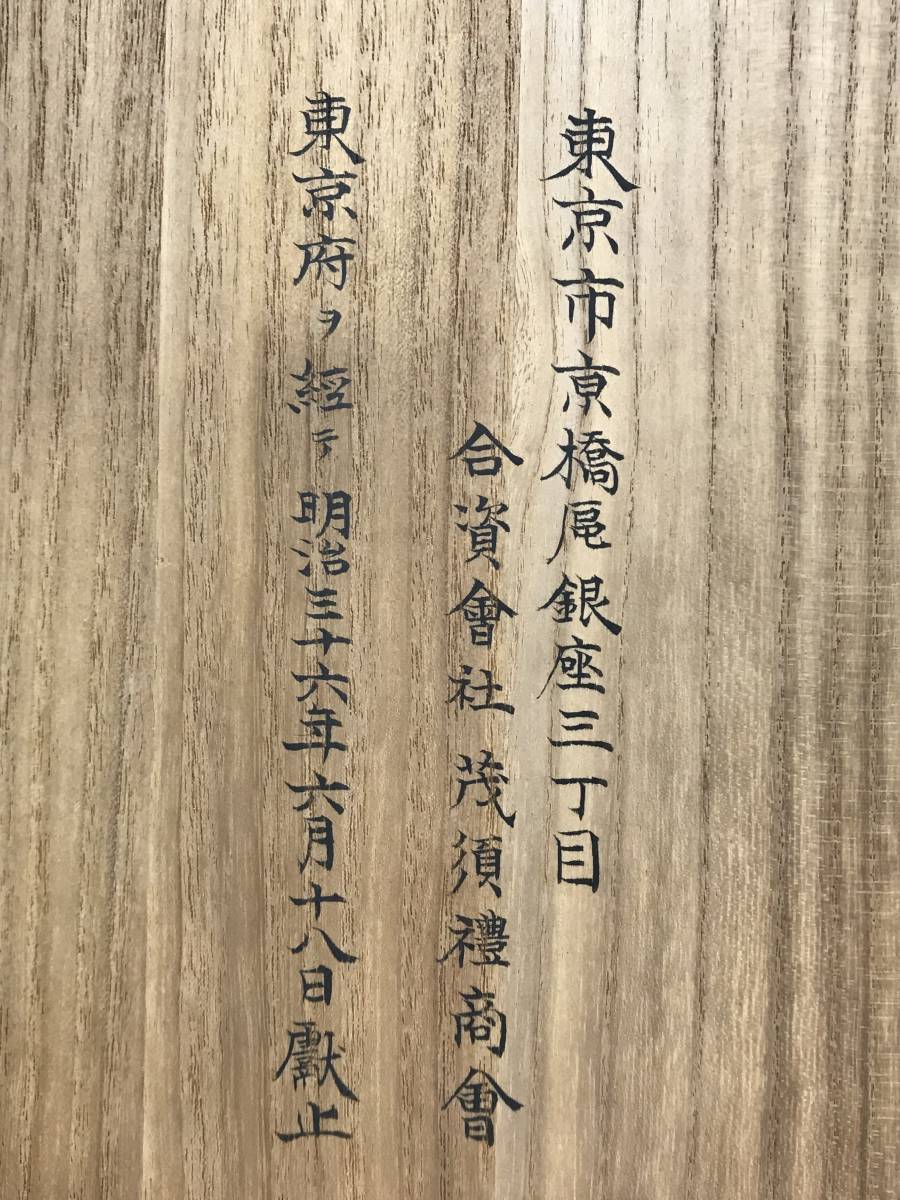 東京市京橋區銀座三丁目
合資會社茂須禮商會
東京府ヲ經テ明治三十六年六月十八日獻止